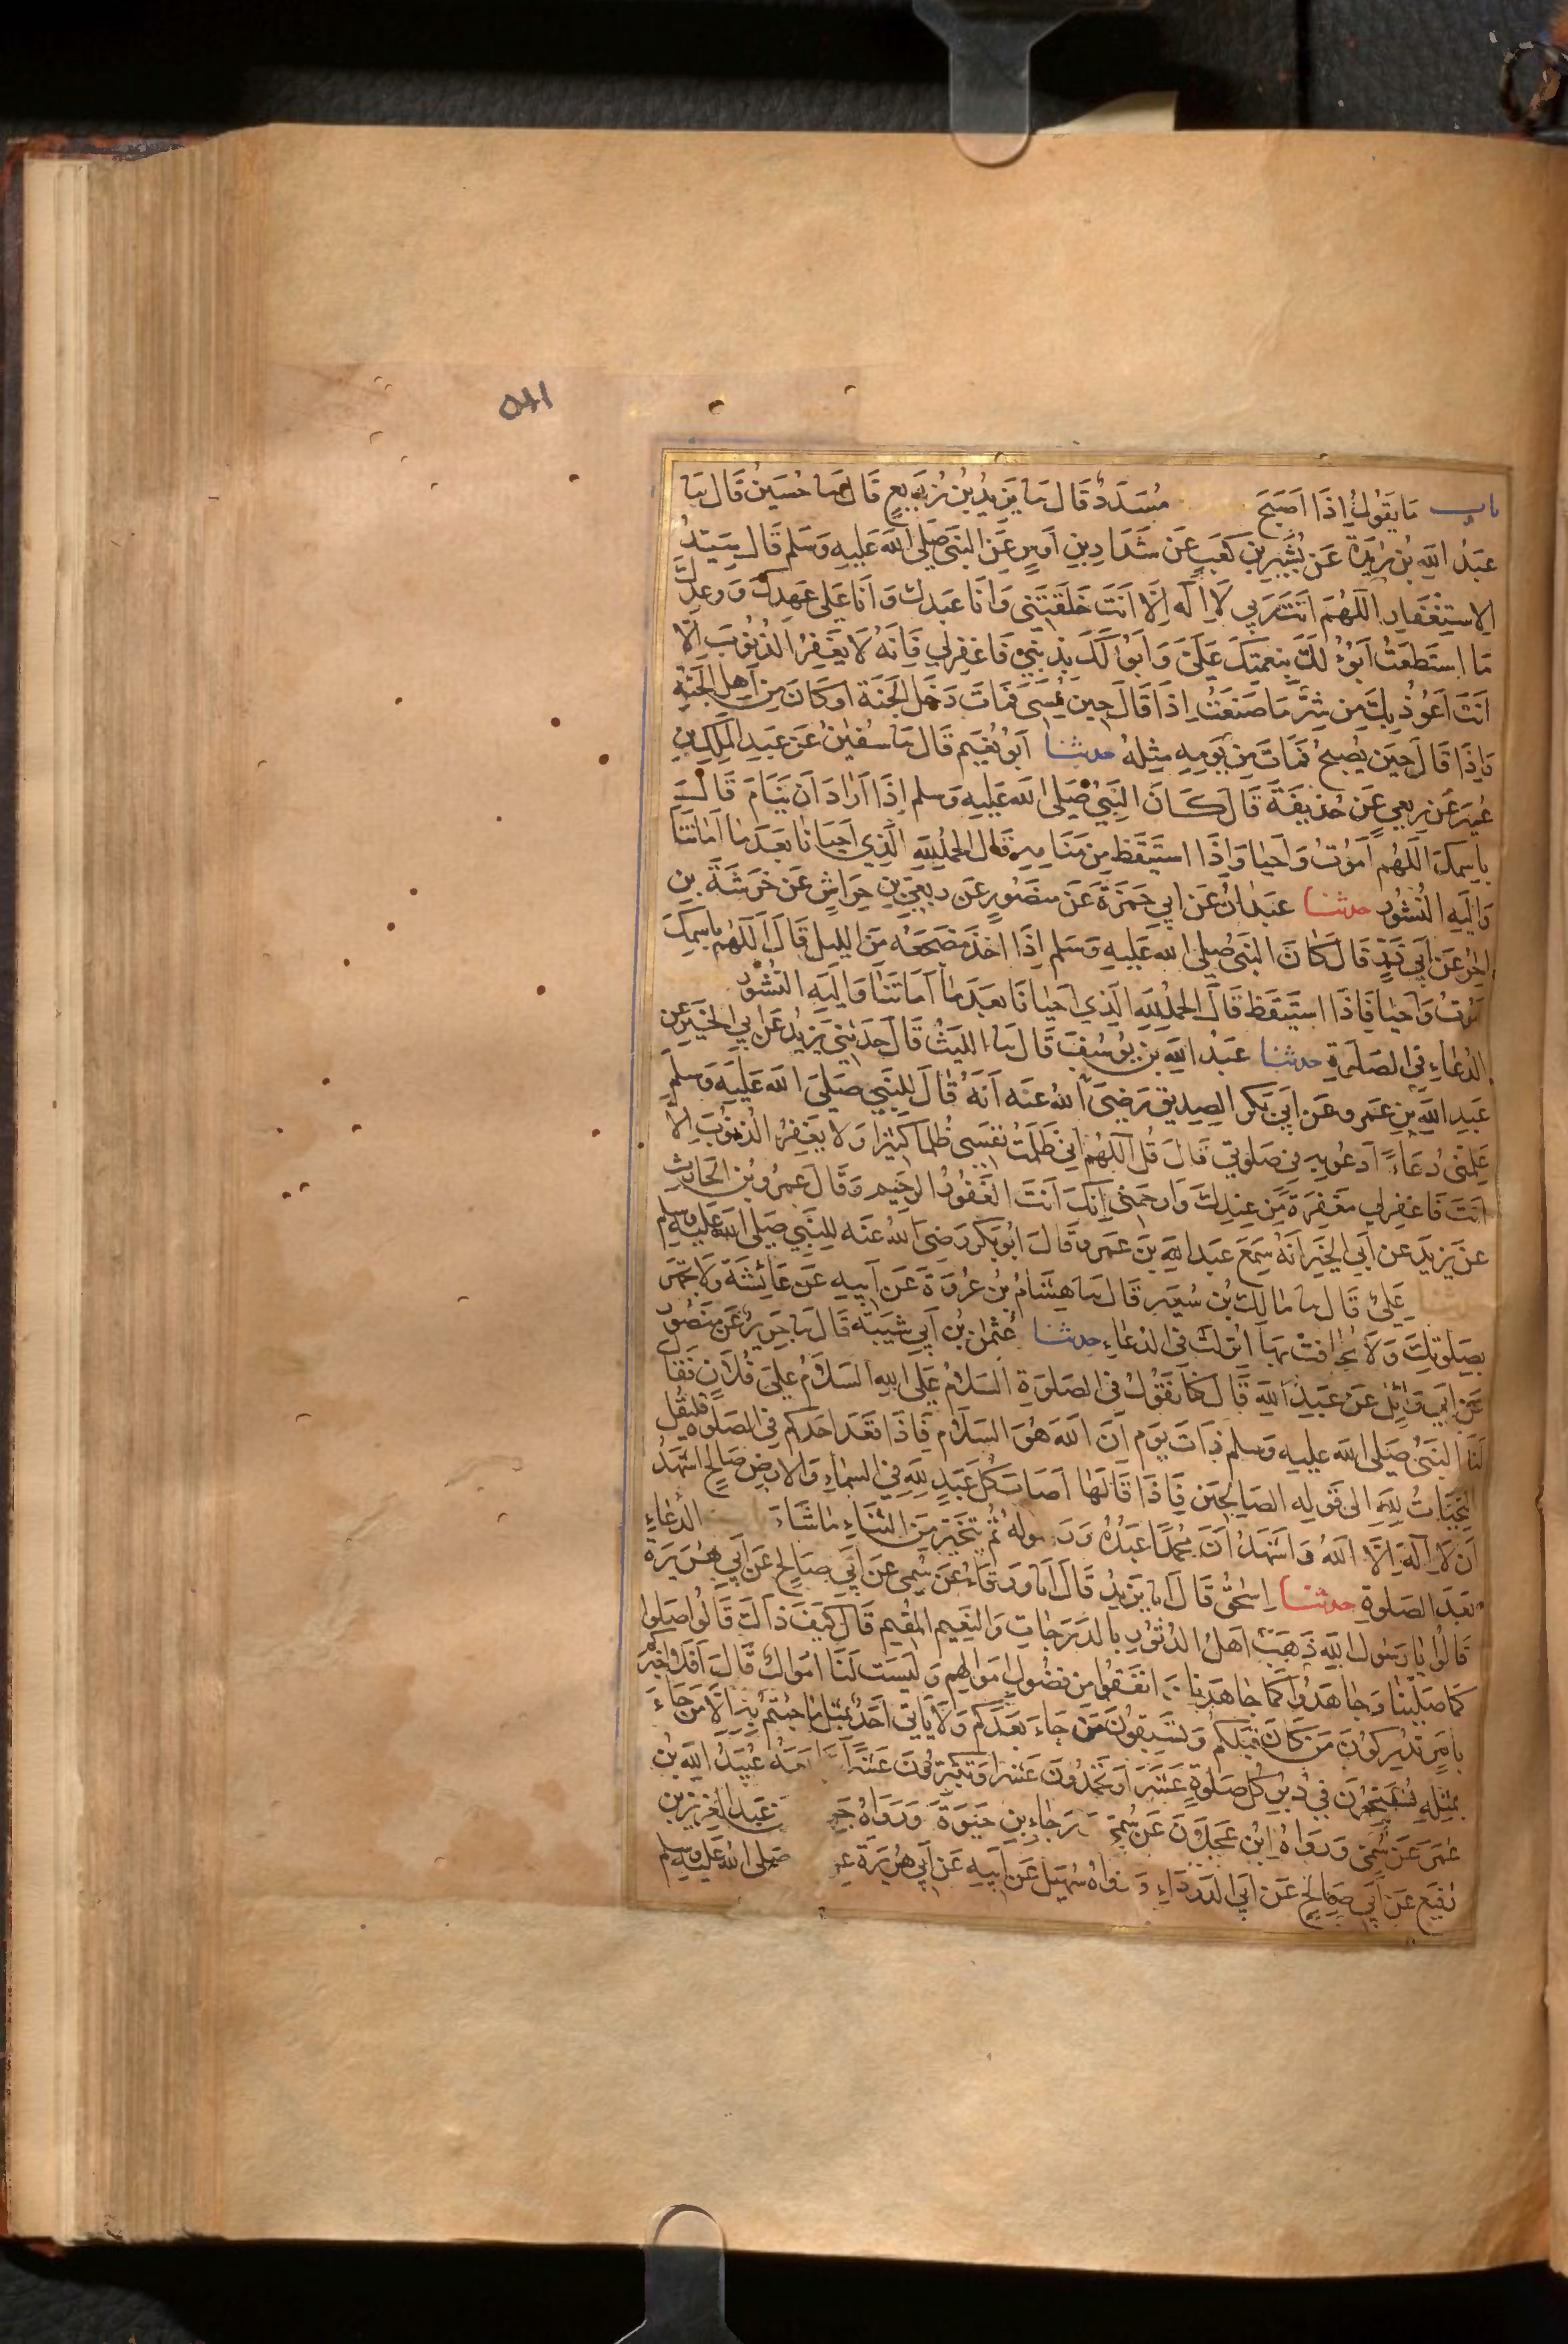 ١٨٥
باب ما يقول اذا اصبح مسدد قال نا يزيد بن زريع قال نا حسين قال نا
عبد الله بن بريدة عن بشير بن كعب عن شداد بن اوس عن النبي صلى الله عليه وسلم قال سيد
الاستغفار اللهم انت ربي لا اله الا انت خلقتني وانا عبدك وانا على عهدك ووعدك
ما استطعت ابوء لك بنعمتك علي وابوء لك بذنبي فاغفر لي فانه لا يغفر الذنوب الا
انت اعوذ بك من شر ما صنعت اذا قال حين يمسي فمات دخل الجنة او كان من اهل الجنة
واذا قال حين يصبح فمات من يومه مثله حدثنا ابو نعيم قال نا سفين عن عبد الملك بن
عمير عن ربعي عن حذيفة قال كان النبي صلى الله عليه وسلم اذا اراد ان ينام قال
باسمك اللهم اموت واحيا واذا استيقظ من منامه قال الحمد لله الذي احيانا بعدما اماتنا
واليه النشور حدثنا عبدان عن ابي حمزة عن منصور عن ربعي بن حراش عن خرشة بن
الحر عن ابي ذر قال كان النبي صلى الله عليه وسلم اذا اخذ مضجعه من الليل قال اللهم باسمك
اموت واحيا فاذا استيقظ قال الحمد لله الذي احيانا بعدما اماتنا واليه النشور
الدعاء في الصلوة حدثنا عبد الله بن يوسف قال نا الليث قال حدثني يزيد عن ابي الخير عن
عبد الله بن عمرو عن ابي بكر الصديق رضي الله عنه انه قال للنبي صلى الله عليه وسلم
علمني دعاء ادعو به في صلوتي قال قل اللهم اني ظلمت نفسي ظلما كثيرا ولا يغفر الذنوب الا
انت فاغفر لي مغفرة من عندك وارحمني انك انت الغفور الرحيم وقال عمرو بن الحارث
عن يزيد عن ابي الخير انه سمع عبد الله بن عمرو قال ابو بكر رضي الله عنه للنبي صلى الله عليه وسلم
علي قال نا مالك بن سعير قال نا هشام بن عروة عن ابيه عن عائشة ولا تجهر
بصلوتك ولا تخافت بها انزلت في الدعاء حدثنا عثمن بن ابي شيبة قال نا جرير عن منصور
عن ابي وائل عن عبد الله قال كنا نقول في الصلوة السلام على الله السلام على فلان فقال
لنا النبي صلى الله عليه وسلم ذات يوم ان الله هو السلام فاذا قعد احدكم في الصلوة فليقل
التحيات لله الى قوله الصالحين فاذا قالها اصاب كل عبد لله في السماء والارض صالح اشهد
ان لا اله الا الله واشهد ان محمدا عبده ورسوله ثم يتخير من الثناء ما شاء الدعاء
بعد الصلوة حدثنا اسحق قال انا يزيد قال انا ورقاء عن سمي عن ابي صالح عن ابي هريرة
قالوا يا رسول الله ذهب اهل الدثور بالدرجات والنعيم المقيم قال كيف ذاك قالوا صلوا
كما صلينا وجاهدوا كما جاهدنا وانفقوا من فضول اموالهم وليست لنا اموال قال افلا اخبركم
بامر تدركون من كان قبلكم وتسبقون من جاء بعدكم ولا ياتي احد بمثل ما جئتم به الا من جاء
بمثله تسبحون في دبر كل صلوة عشرا وتحمدون عشرا وتكبرون عشرا تابعه عبيد الله بن
عمر عن سمي ورواه ابن عجلان عن سمي ورجاء بن حيوة ورواه جرير عن عبد العزيز بن
رفيع عن ابي صالح عن ابي الدرداء ورواه سهيل عن ابيه عن ابي هريرة عن صلى الله عليه وسلم